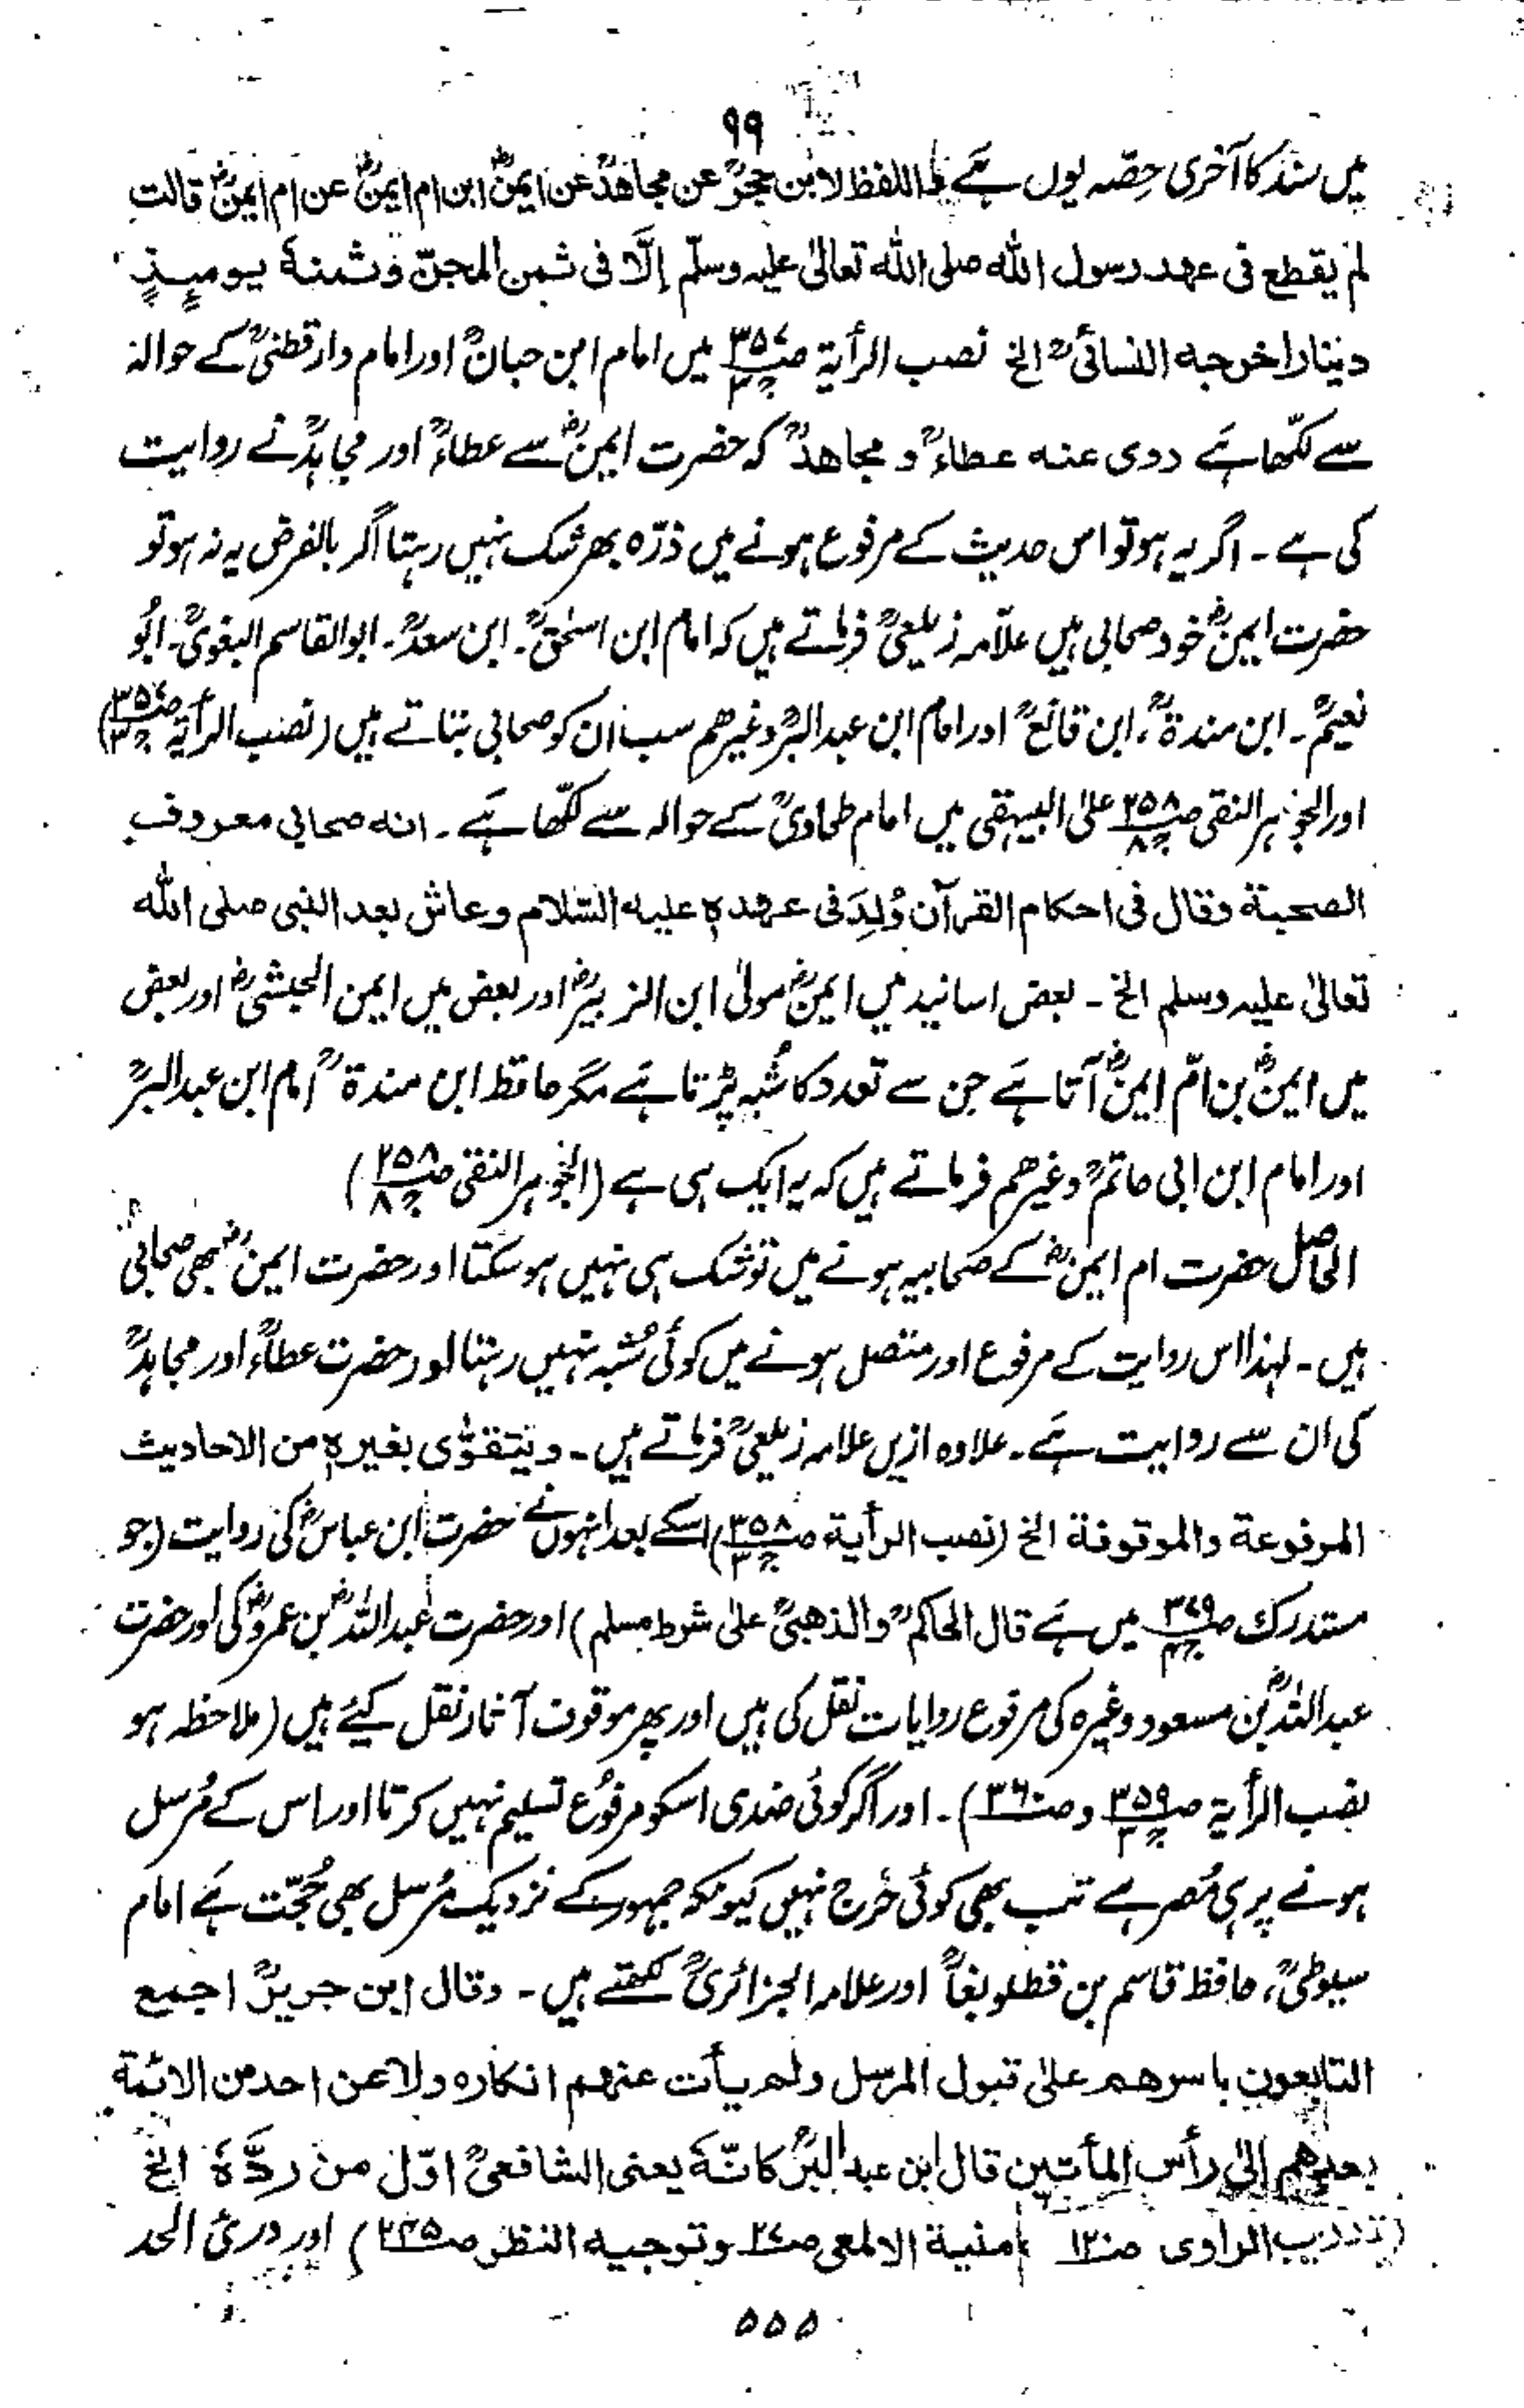 ۹۹
میں سند کا آخری حِصّہ یوں ہَے واللفظ لابن حجرؒ عن مجاھدؒ عن ایمنؓ ابن ام ایمنؓ عن ام ایمنؓ قالت
لم یقطع فی عھد رسول اللہ صلی اللہ تعالیٰ علیہ وسلّم اِلَّا فی ثمن المجنّ وثمنہٗ یومیٍذٍ
دینار اخرجہ النسائیؒ الخ نصب الرأیۃ ص۳۵۷ ج۳ میں امام ابن حبانؒ اور امام دارقطنیؒ کے حوالہ
سے لکھا ہَے روی عنہ عطاءؒ و مجاھدؒ کہ حضرت ایمنؓ سے عطاءؒ اور مجاہدؒ نے روایت
کی ہے ۔ اگر یہ ہو تو اس حدیث کے مرفوع ہونے میں ذرّہ بھر شک نہیں رہتا اگر بالفرض یہ نہ ہو تو
حضرت ایمنؓ خود صحابی ہیں علاّمہ زیلعیؒ فرماتے ہیں کہ امام ابن اسحٰقؒ ۔ ابن سعدؒ ۔ ابو القاسم البغویؒ ۔ ابُو
نعیمؒ ۔ ابن مندۃؒ ، ابن قانعؒ اور امام ابن عبد البرؒ وغیرھم سب ان کو صحابی بتاتے ہیں (نصب الرأیۃ ص۳۵۷ ج۳)
اور الجوہر النقی ص۲۵۸ ج۸ علیٰ البیہقی میں امام طحاویؒ کے حوالہ سے لکھا ہَے ۔ انہ صحابی معروف
الصحبۃ وقال فی احکام القرآن وُلِدَ فی عھدہٖ علیہ السّلام وعاش بعد النبی صلی اللہ
تعالیٰ علیہ وسلم الخ ۔ بعض اسانید میں ایمنؓ مولیٰ ابن الزبیرؓ اور بعض میں ایمن الحبشیؓ اور بعض
میں ایمنؓ بن امّ ایمنؓ آتا ہَے جن سے تعدد کا شُبہ پڑتا ہَے مگر حافظ ابن مندۃؒ امام ابن عبد البرؒ
اور امام ابن ابی حاتمؒ وغیرھم فرماتے ہیں کہ یہ ایک ہی ہے (الجوہر النقی ص۲۵۸ ج۸)
الحاصل حضرت ام ایمنؓ کے صحابیہ ہونے میں تو شک ہی نہیں ہو سکتا اور حضرت ایمنؓ بھی صحابی
ہیں ۔ لہذا اس روایت کے مرفوع اور متصل ہونے میں کوئی شُبہ نہیں رہتا اور حضرت عطاءؒ اور مجاہدؒ
کی ان سے روایت ہَے ۔ علاوہ ازیں علامہ زیلعیؒ فرماتے ہیں ۔ ویتقوّٰی بغیرہٖ من الاحادیث
المرفوعۃ والموقوفۃ الخ (نصب الرأیۃ ص۳۵۸ ج۳) اسکے بعد انہوں نے حضرت ابن عباسؓ کی روایت (جو
مستدرک ص۳۷۹ ج۴ میں ہَے قال الحاکمؒ والذھبیؒ علیٰ شرط مسلم) اور حضرت عبد اللہؓ بن عمروؓ کی اور حضرت
عبد اللہؓ بن مسعود وغیرہ کی مرفوع روایات نقل کی ہیں اور پھر موقوف آثار نقل کیئے ہیں (ملاحظہ ہو
نصب الرأیۃ ص۳۵۹ ج۳ و ص۳۶۰) ۔ اور اگر کوئی ضدی اسکو مرفوُع تسلیم نہیں کرتا اور اس کے مُرسل
ہونے پر ہی مُصر ہے تب بھی کوئی حَرج نہیں کیونکہ جمہور کے نزدیک مُرسل بھی حُجّت ہَے امام
سیوطیؒ ، حافظ قاسم بن قطلوبغاؒ اور علامہ الجزائریؒ لکھتے ہیں ۔ وقال ابن جریرؒ اجمع
التابعون باسرھم علیٰ قبول المرسل ولم یأت عنھم انکارہ ولا عن احد من الائمۃ
بعدھم الیٰ رأس المأتین قال ابن عبد البرؒ کانّہٗ یعنی الشافعیؒ اوّل من ردَّہٗ الخ
(تدریب الراوی ص۱۲۰ منیۃ الالمعی ص۲۷ وتوجیہ النظر ص۲۴۵) اور درئ الحد
۵۵۵